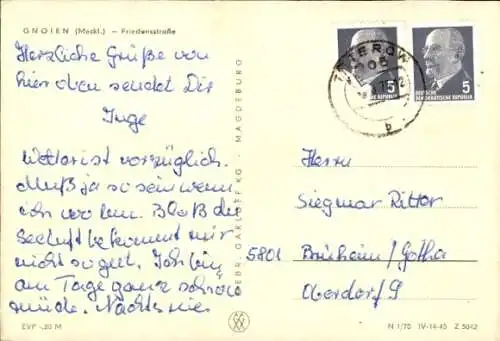 GNOIEN (Meckl.) – Friedensstraße
Herzliche Grüße von
hier oben sendet Dir
Inge
Wetter ist vorzüglich.
Muß ja so sein wenn
ich komm. Bloß die
Seeluft bekommt mir
nicht so gut. Ich bin
am Tage ganz schön
müde. Nachts nie
EVP -,20 M
GEBR. GARLOFF KG · MAGDEBURG
TETEROW
b
5
DEUTSCHE DEMOKRATISCHE REPUBLIK
5
DEUTSCHE DEMOKRATISCHE REPUBLIK
Herrn
Siegmar Ritter
5801 Brüheim/Gotha
Oberdorf 9
N 1/70 IV-14-45 Z 5042